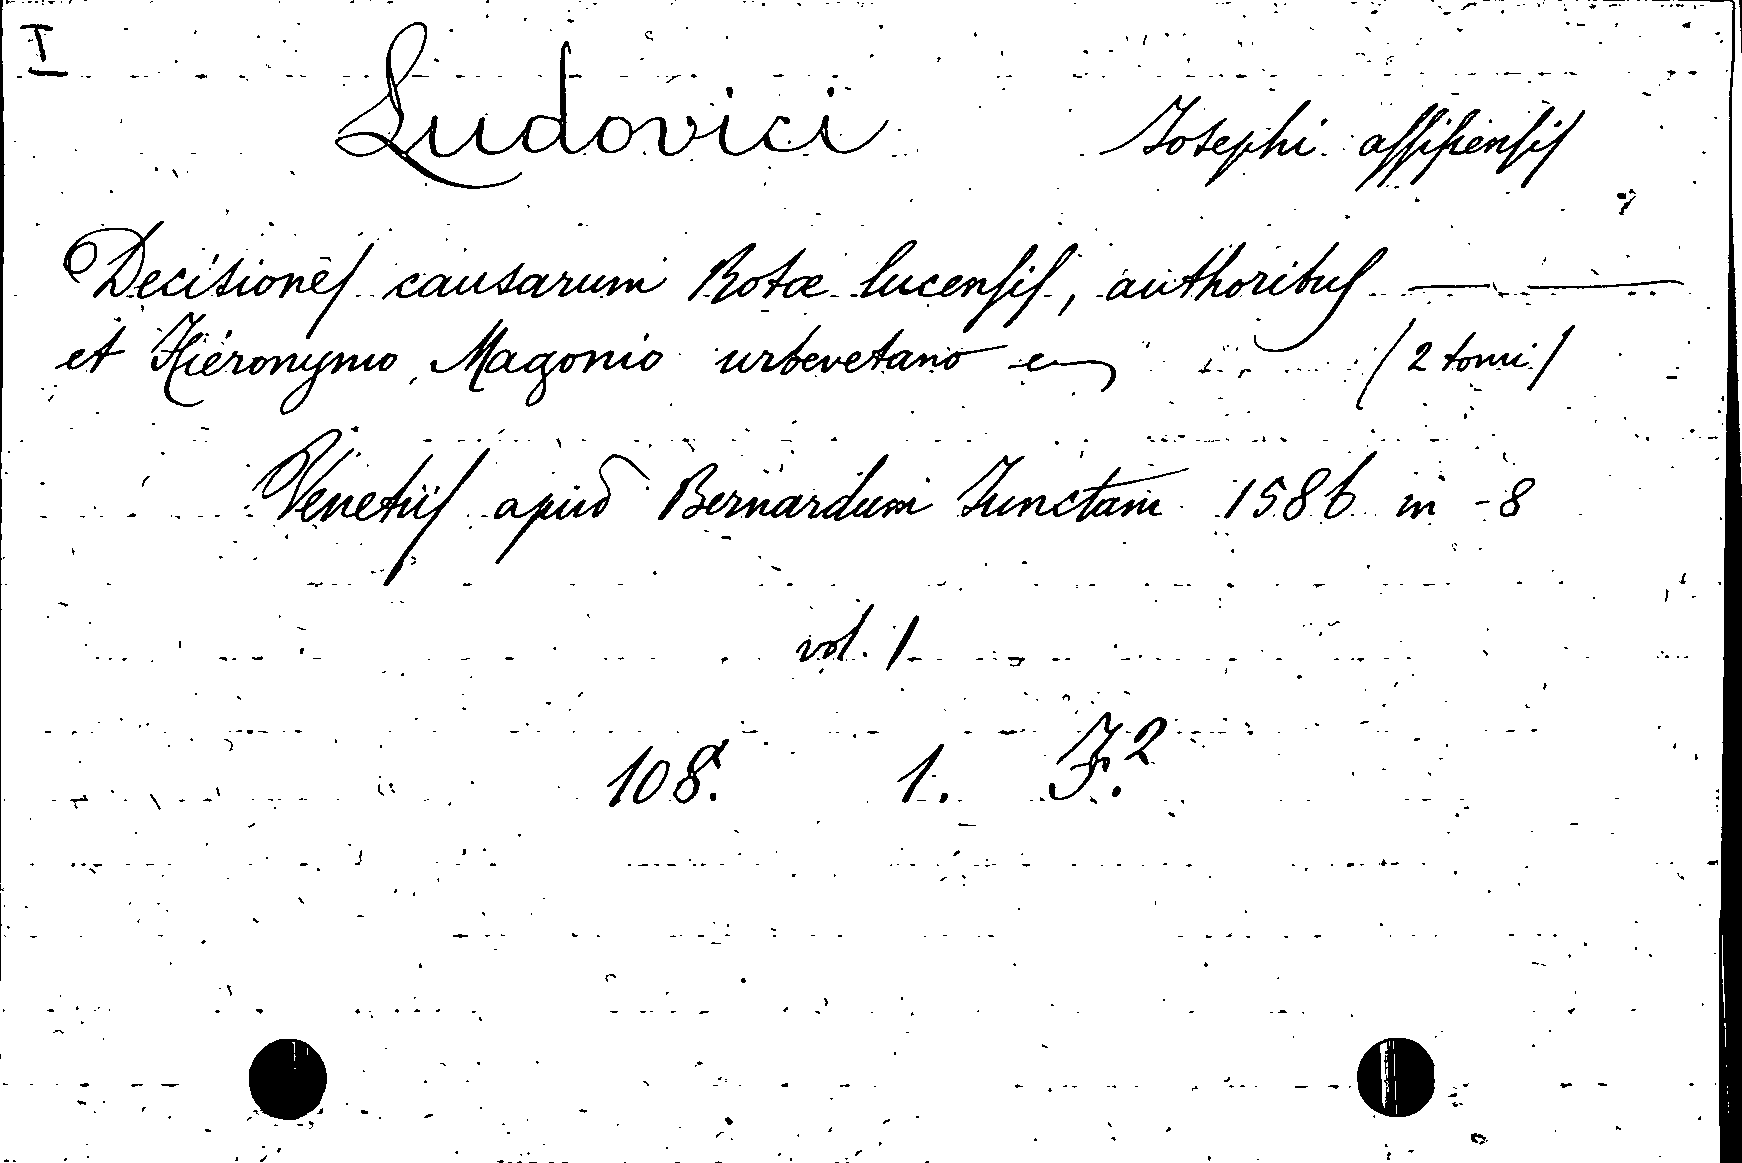 I
Ludovici Josephi assisiensis
Decisiones causarum Rotæ lucensis, authoribus ———
et Hieronymo Magonio urbevetano (2 tomi)
Venetiis apud Bernardum Junctam 1586 in-8
vol. 1
108. 1. F.²